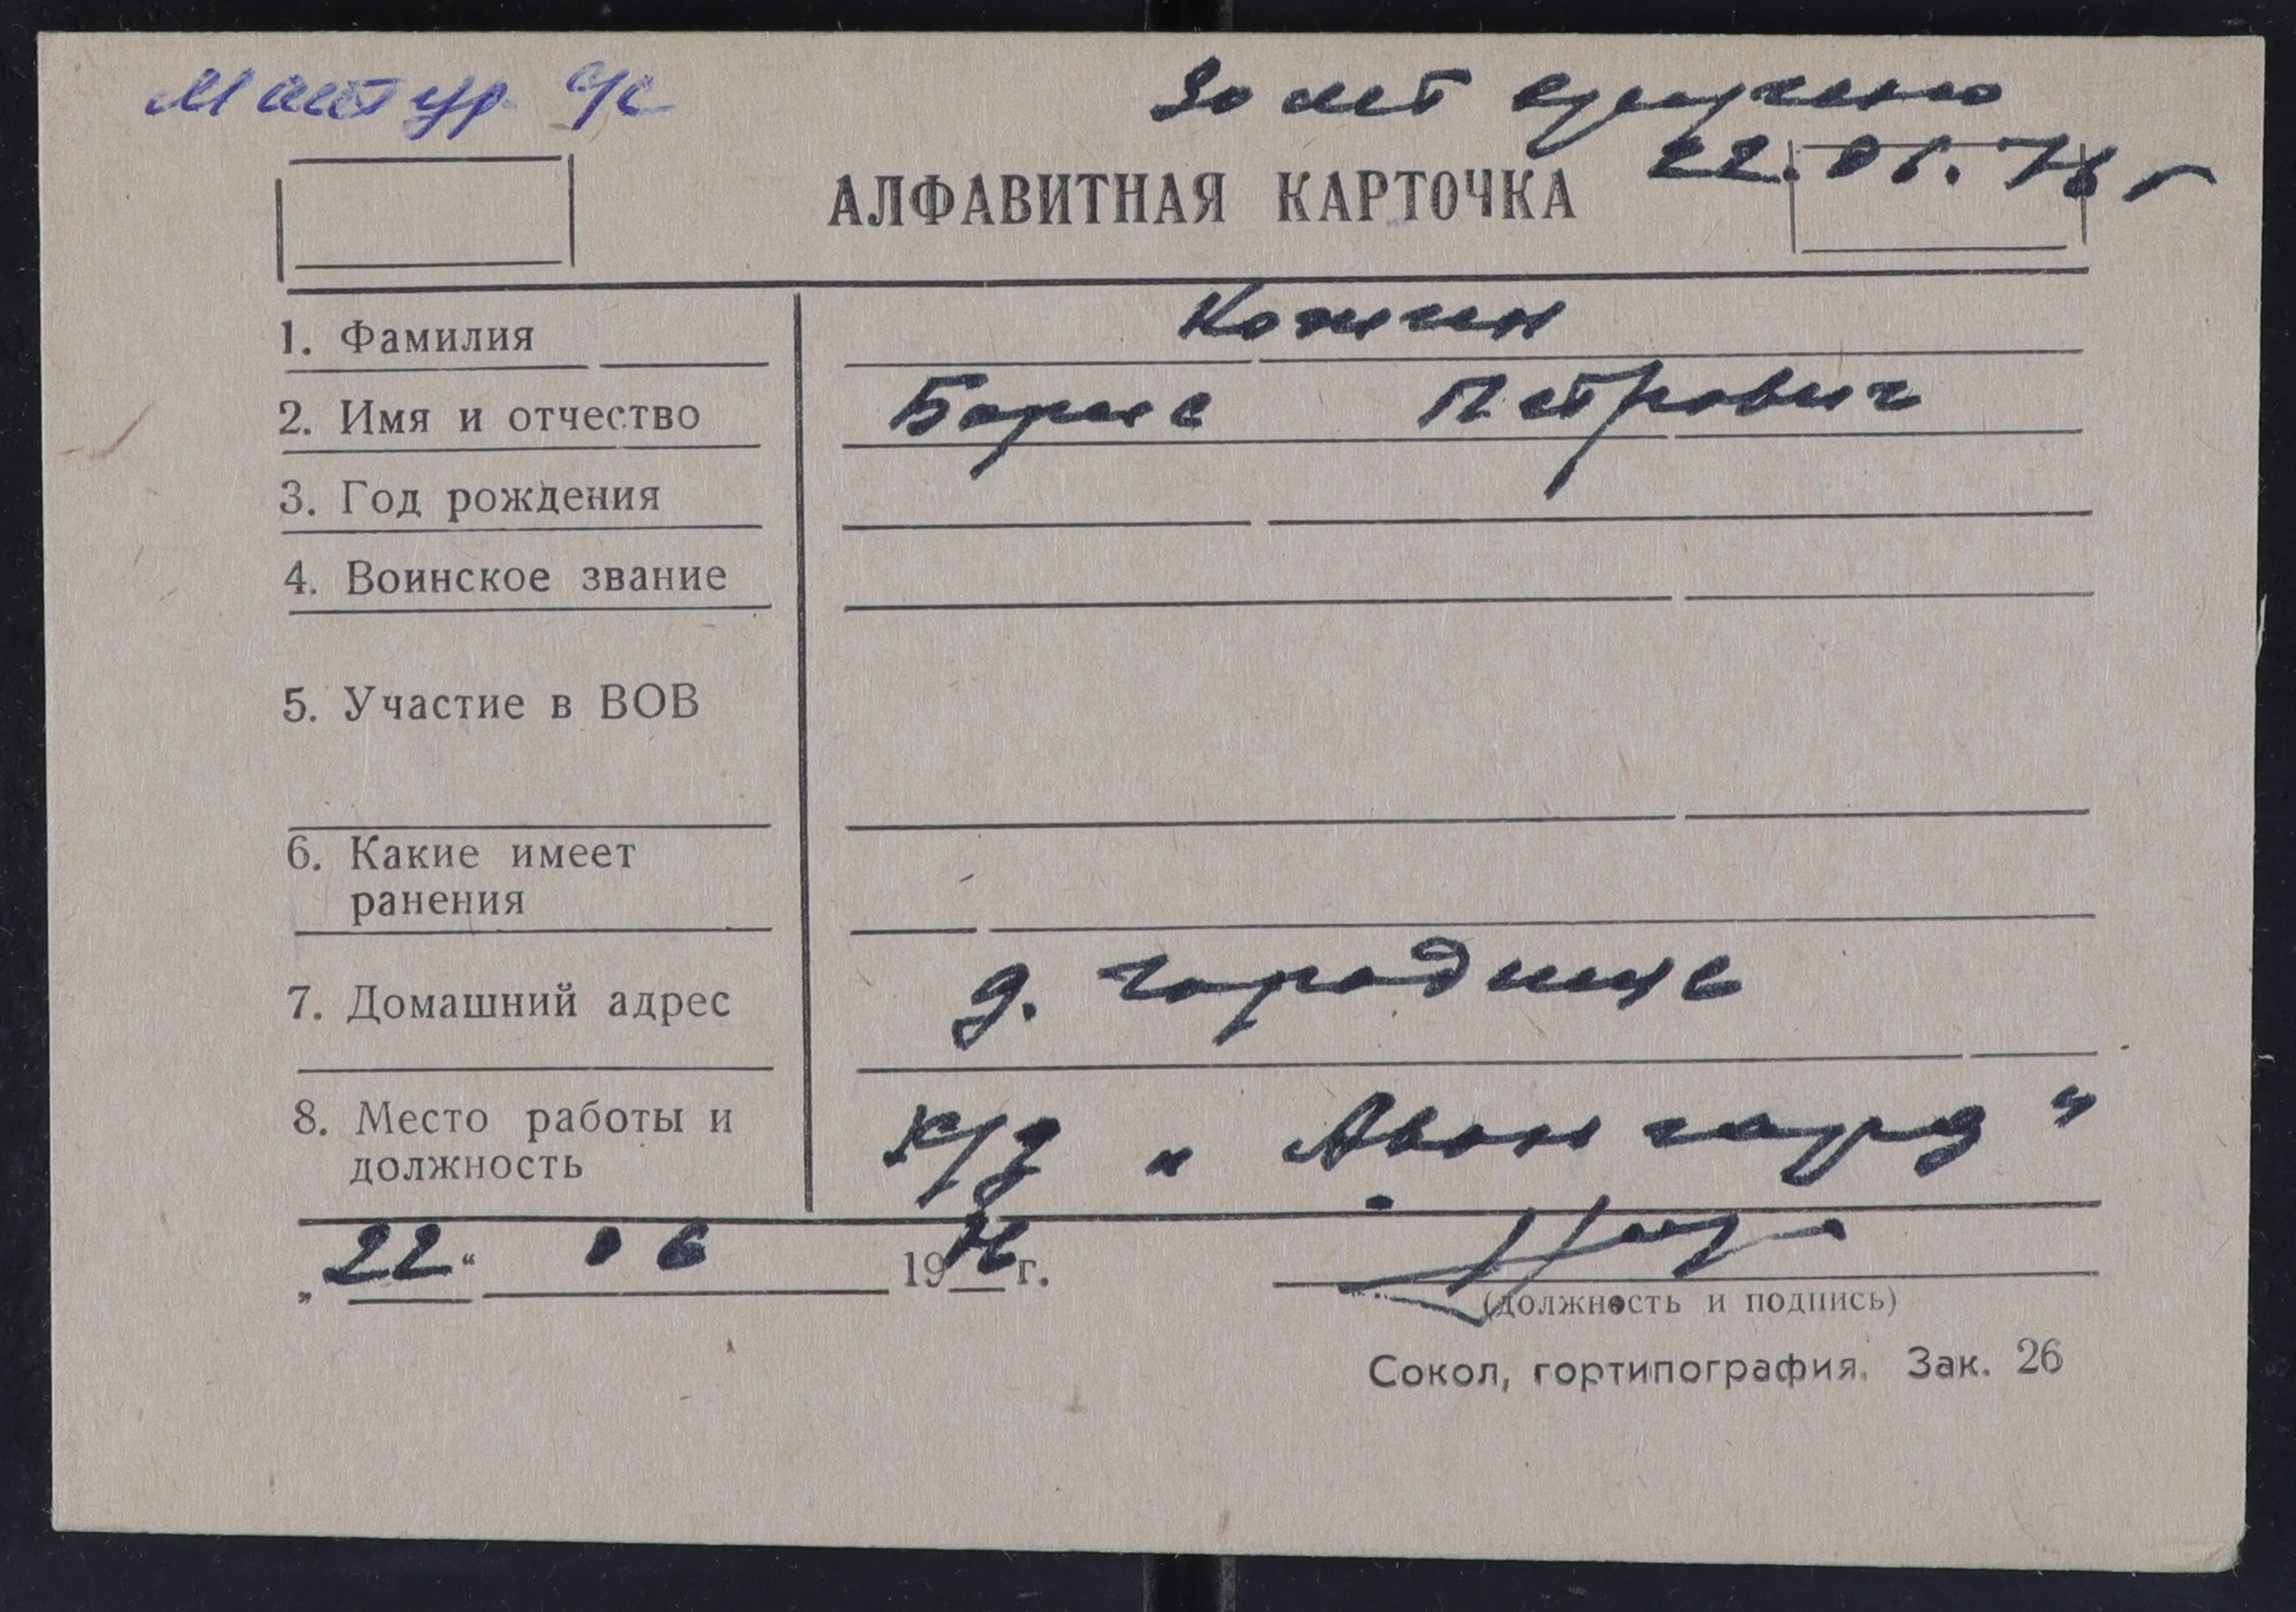 30 лет вручено
22.06.76 г
АЛФАВИТНАЯ КАРТОЧКА
1. Фамилия Кожин
2. Имя и отчество Борис Петрович
3. Год рождения
4. Воинское звание
5. Участие в ВОВ
6. Какие имеет
ранения
7. Домашний адрес д. Городище
8. Место работы и
должность
к/з „Авангард"
„22" 06 1976 г.
(должность и подпись)
Сокол, гортипография. Зак. 26